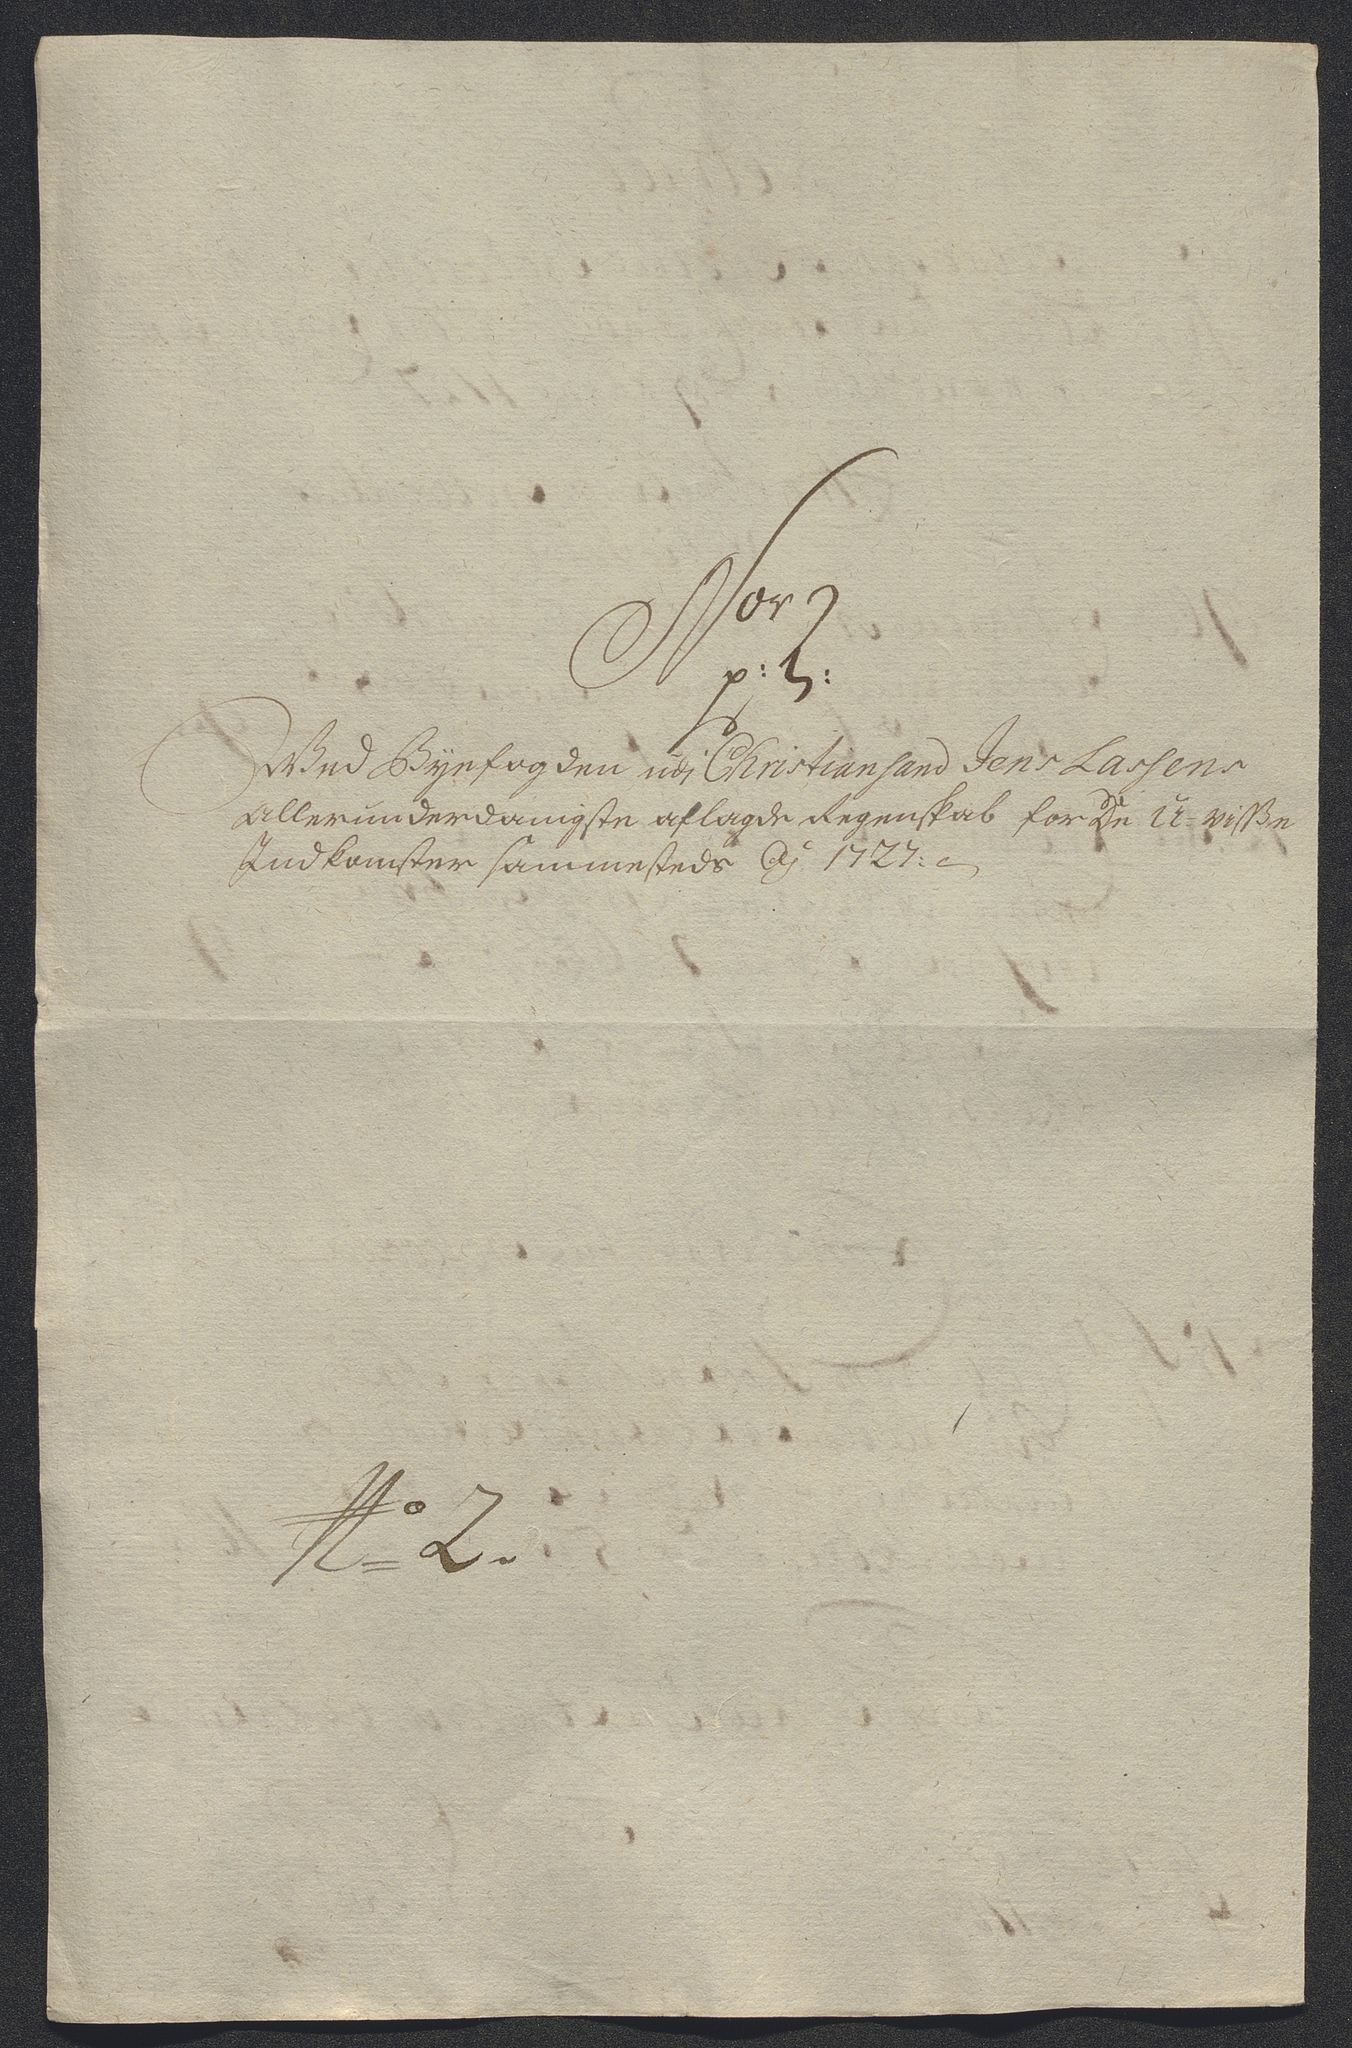 Nor 2
p: 2:
Ved Byefogden udj Christiansand Jens Lassens
Allerunderdanigste aflagde Regenskab for De U-visse
Indkomster sammesteds Aõ 1727:
No 2.